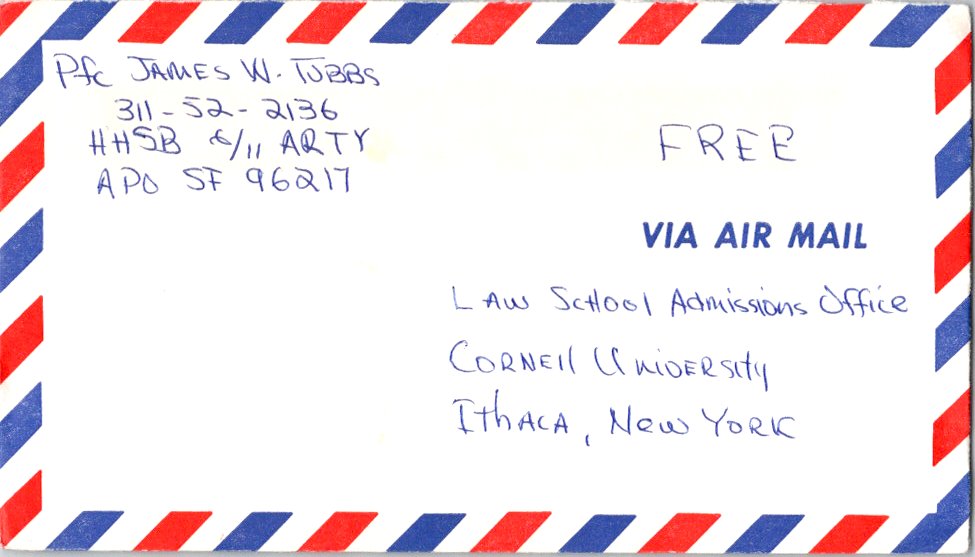 Pfc JAMES W. TUBBS
311-52-2136
HHSB 6/11 ARTY
APO SF 96217
FREE
VIA AIR MAIL
LAW SCHOOL Admissions Office
CORNEll UNIVERSITY
IthACA, New YORK